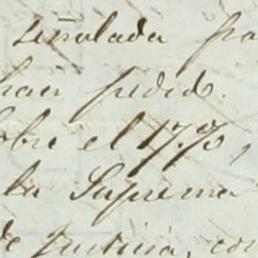 señalada pa
han pedido.
sobre el 17.%,
la Suprema
de justicia, con